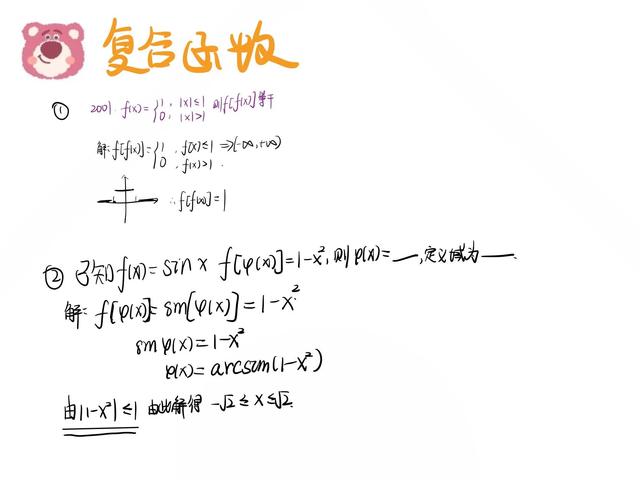 复合函数
① 2001. f(x)={1, |x|≤1 0, |x|>1 则f[f(x)]等于
解:f[f(x)]={1, f(x)≤1 ⇒(-∞,+∞) 0, f(x)>1.
∴f[f(x)]=1
② 已知f(x)=sinx f[φ(x)]=1-x²,则φ(x)=__,定义域为__.
解: f[φ(x)]=sin[φ(x)]=1-x²
sinφ(x)=1-x²
φ(x)=arcsin(1-x²)
由|1-x²|≤1 由此解得 -√2≤x≤√2.